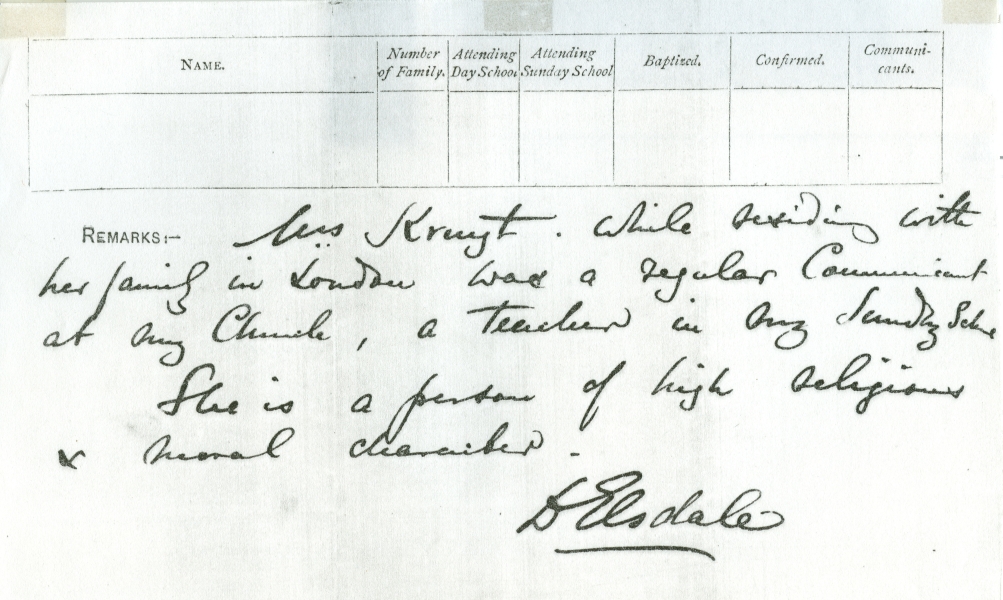 NAME. Number of Family. Attending Day School. Attending Sunday School Baptized. Confirmed. Communi-cants.
REMARKS:- Miss Kruyt. while residing with
her family in London was a regular Communicant
at my Church, a teacher in my Sunday Schoo
She is a person of high religious
& moral character.
D Elsdale